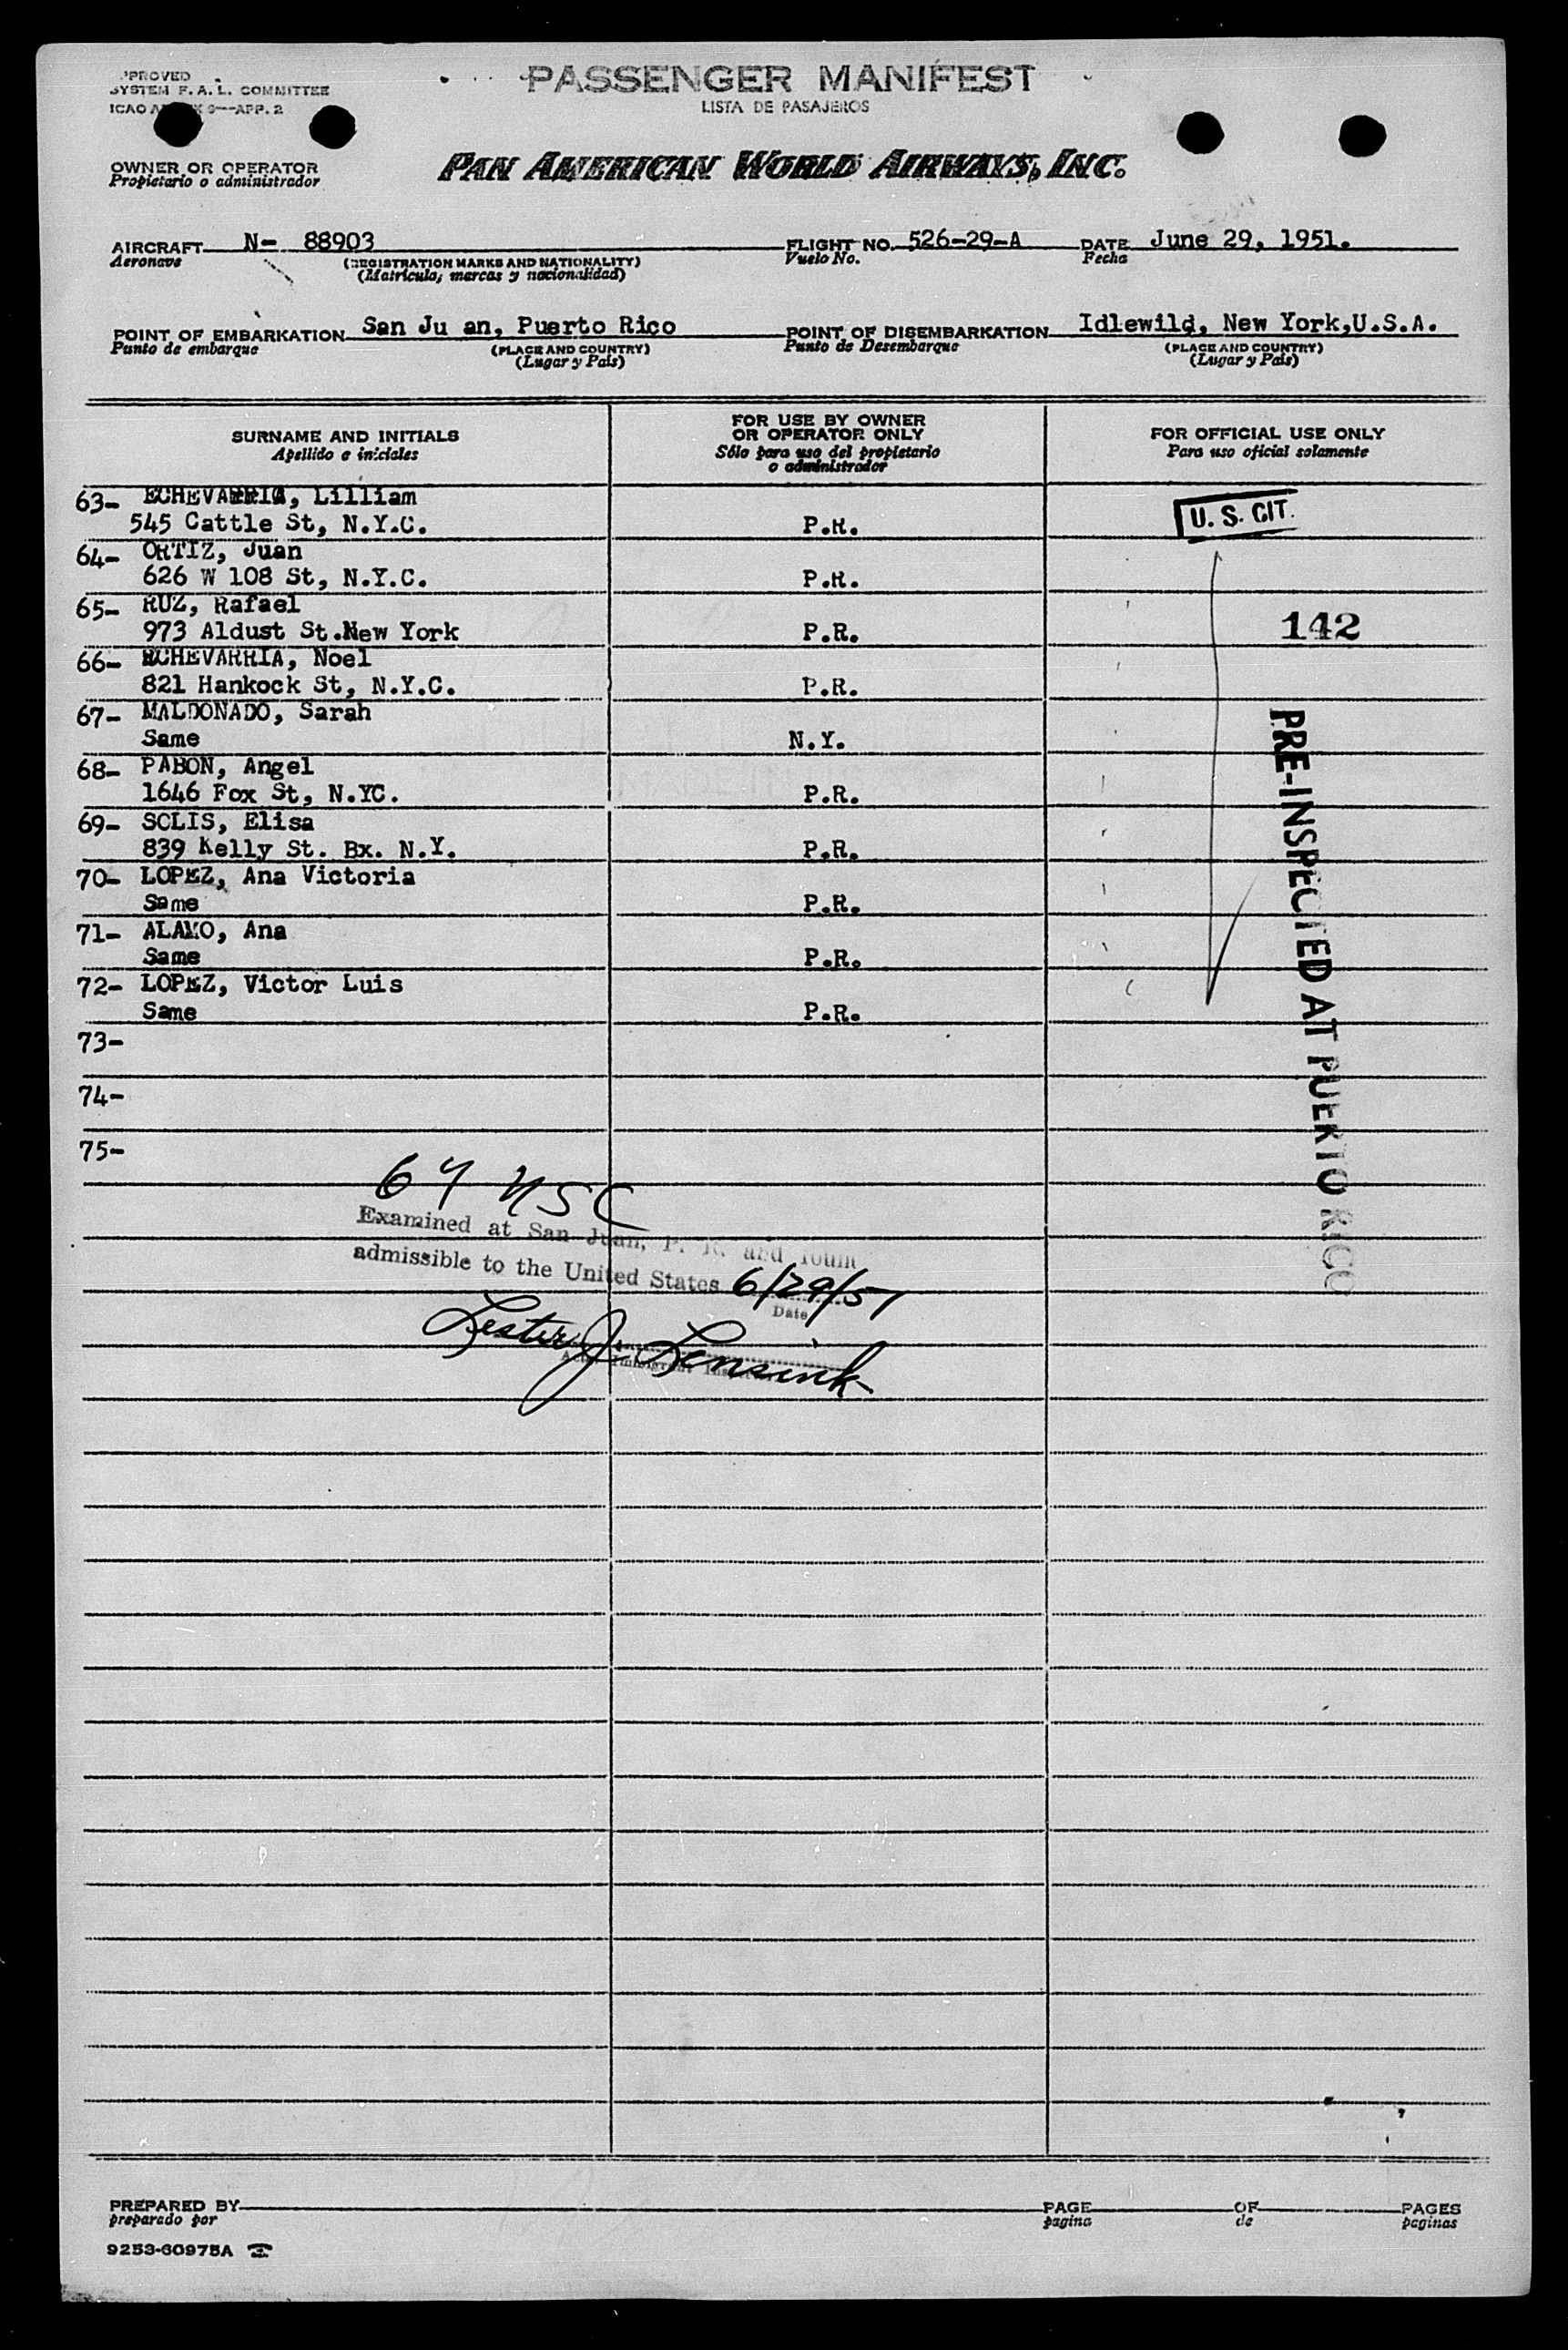 PASSENGER MANIFEST
LISTA DE PASAJEROS
SYSTEM F. A. L. COMMITTEE
ICAO 9—APP. 2
OWNER OR OPERATOR
Propietario o administrador
PAN AMERICAN WORLD AIRWAYS, INC.
AIRCRAFT N- 88903 FLIGHT NO. 526-29-A DATE June 29, 1951.
Aeronave (REGISTRATION MARKS AND NATIONALITY) Vuelo No. Fecha
(Matricula, marcas y nacionalidad)
POINT OF EMBARKATION San Ju an, Puerto Rico POINT OF DISEMBARKATION Idlewild, New York,U.S.A.
Punto de embarque (PLACE AND COUNTRY) Punto de Desembarque (PLACE AND COUNTRY)
(Lugar y País) (Lugar y País)
SURNAME AND INITIALS
Apellido e iniciales
FOR USE BY OWNER
OR OPERATOR ONLY
Sólo para uso del propietario
o administrador
FOR OFFICIAL USE ONLY
Para uso oficial solamente
63- ECHEVARRIA, Lilliam
545 Cattle St, N.Y.C. P.R. U. S. CIT.
64- ORTIZ, Juan
626 W 108 St, N.Y.C. P.R.
65- RUZ, Rafael
973 Aldust St.New York P.R. 142
66- ECHEVARRIA, Noel
821 Hankock St, N.Y.C. P.R.
67- MALDONADO, Sarah
Same N.Y.
68- PABON, Angel
1646 Fox St, N.YC. P.R.
69- SOLIS, Elisa
839 Kelly St. Bx. N.Y. P.R.
70- LOPEZ, Ana Victoria
Same P.R.
71- ALAMO, Ana
Same P.R.
72- LOPEZ, Victor Luis
Same P.R.
73-
74-
75-
PRE-INSPECTED AT PUERTO RICO
Examined at San Juan, P. R. and found
admissible to the United States 6/29/51
Date
Lester J. Lensink
PREPARED BY PAGE OF PAGES
preparado por pagina de paginas
9253-60975A